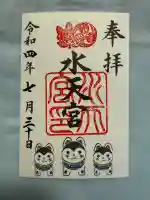 奉拝
水天宮
令和四年七月三十日